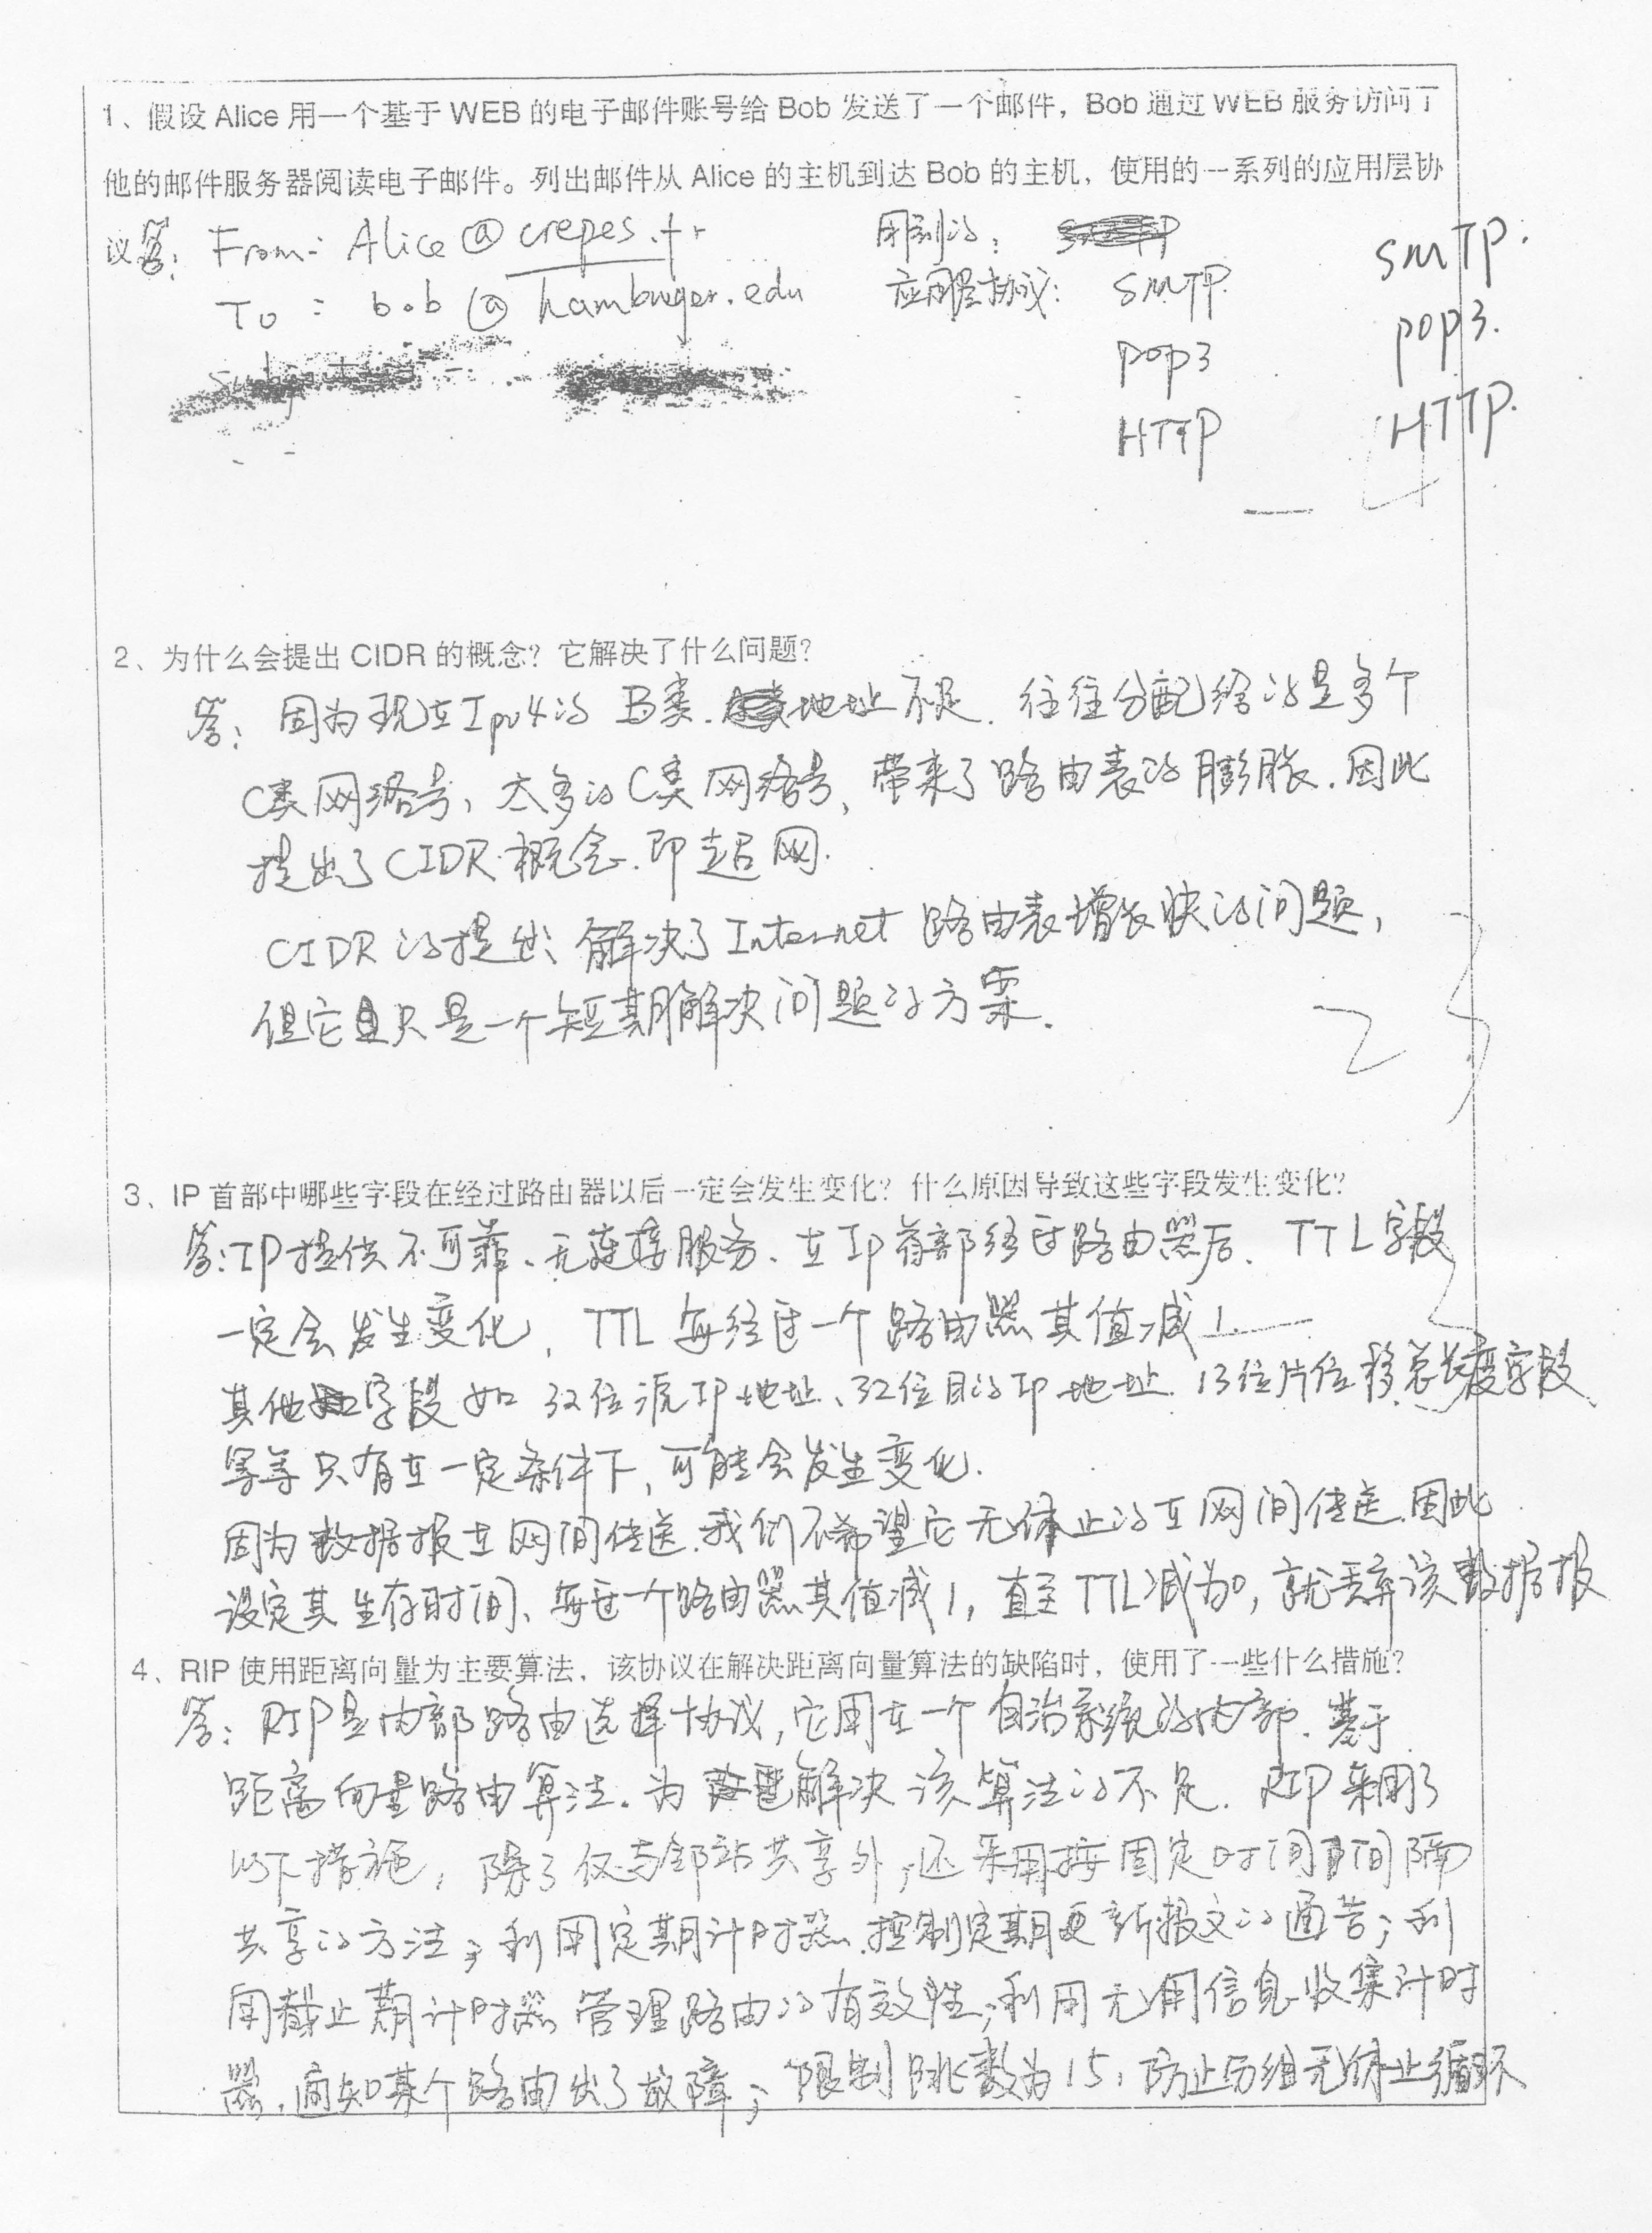 1、假设 Alice 用一个基于 WEB 的电子邮件账号给 Bob 发送了一个邮件，Bob 通过 WEB 服务访问了
他的邮件服务器阅读电子邮件。列出邮件从 Alice 的主机到达 Bob 的主机，使用的一系列的应用层协
议答：From: Alice@crepes.fr 用到的：
To: bob@hamburger.edu 应用层协议：SMTP. SMTP.
pop3 pop3.
HTTP HTTP.
2、为什么会提出 CIDR 的概念？它解决了什么问题？
答：因为现在Ipv4的 B类.地址不足. 往往分配给的是多个
C类网络号，太多的C类网络号、带来了路由表的膨胀.因此
提出了CIDR概念.即超网.
CIDR的提出、解决了Internet 路由表增长快的问题，
但它只是一个短期解决问题的方案.
3、IP 首部中哪些字段在经过路由器以后一定会发生变化？什么原因导致这些字段发生变化？
答：IP提供不可靠、无连接服务、在IP首部经过路由器后、TTL字段
一定会发生变化，TTL 每经过一个路由器其值减1.
其他字段如 32位源IP地址、32位目的IP地址. 13位片位移总长度字段
等等只有在一定条件下，可能会发生变化.
因为数据报在网间传送.我们不希望它无休止的在网间传送.因此
设定其生存时间、每过一个路由器其值减1，直至TTL减为0，就丢弃该数据报
4、RIP 使用距离向量为主要算法，该协议在解决距离向量算法的缺陷时，使用了一些什么措施？
答：RIP是内部路由选择协议，它用在一个自治系统的内部.基于
距离向量路由算法。为解决该算法的不足. RIP采用了
以下措施，除了仅与邻站共享外，还采用按固定时间间隔
共享的方法；利用定期计时器.控制定期更新报文的通告；利
用截止期计时器管理路由的有效性；利用无用信息收集计时
器.通知某个路由出了故障；限制跳数为15，防止分组无休止循环